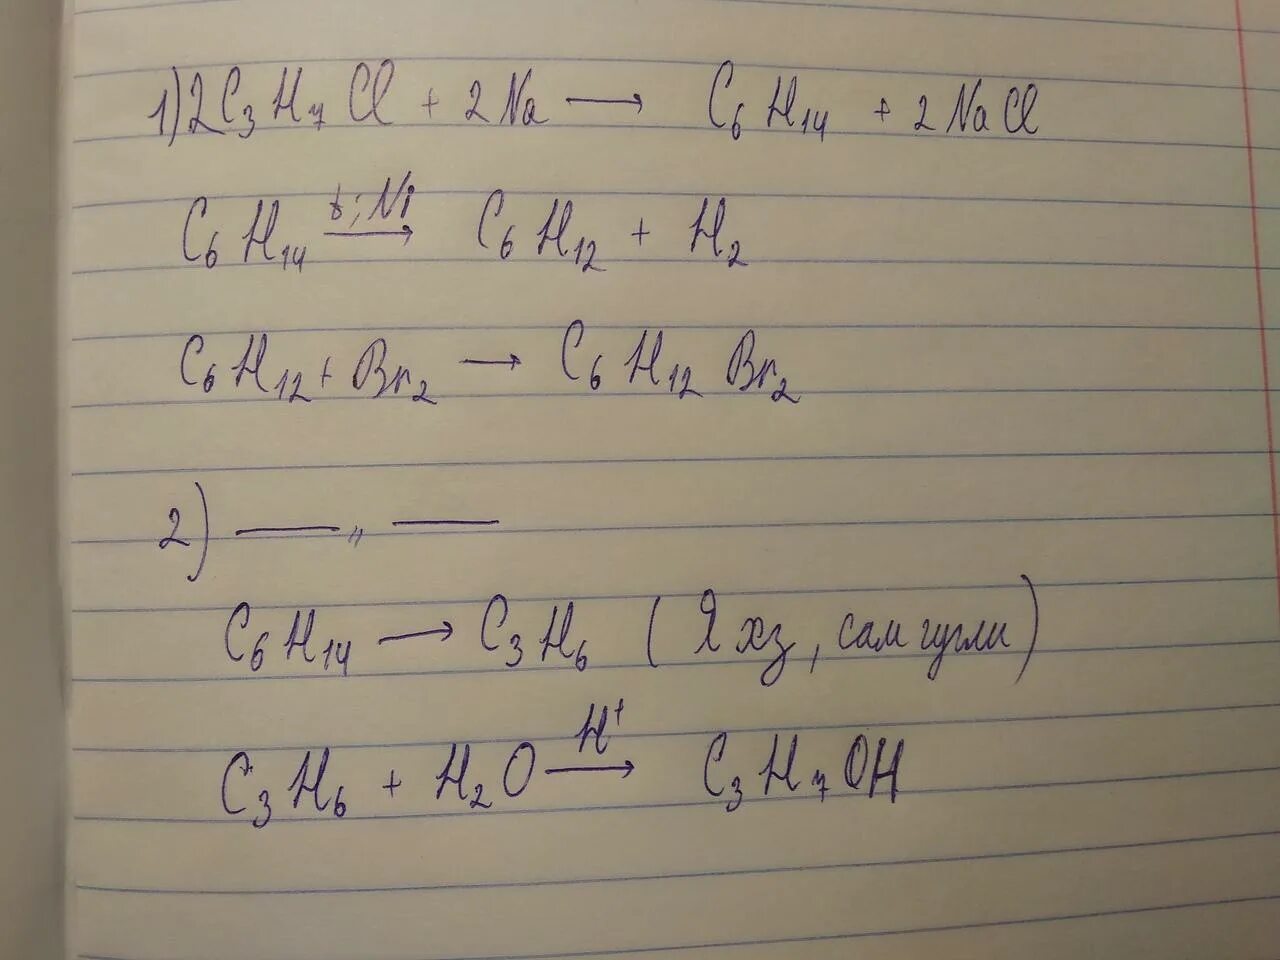 1) 2C₃H₇Cl + 2Na ⟶ C₆H₁₄ + 2NaCl
C₆H₁₄ t;Ni⟶ C₆H₁₂ + H₂
C₆H₁₂ + Br₂ ⟶ C₆H₁₂Br₂
2) —— „ ——
C₆H₁₄ ⟶ C₃H₆ (Я хз, сам гугли)
C₃H₆ + H₂O H⁺⟶ C₃H₇OH